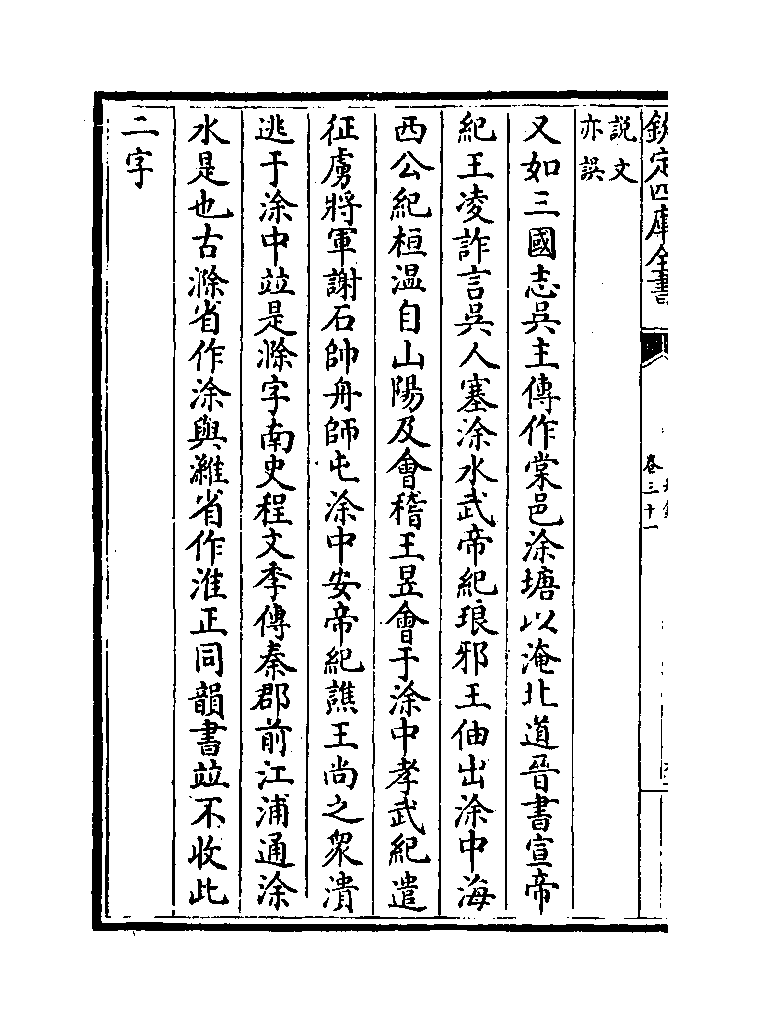 欽定四庫全書
卷三十一
說文
亦誤
又如三國志吳主傳作棠邑涂塘以淹北道晉書宣帝
紀王凌詐言吳人塞涂水武帝紀琅邪王伷出涂中海
西公紀桓溫自山陽及會稽王昱會于涂中孝武紀遣
征虜將軍謝石帥舟師屯涂中安帝紀譙王尚之衆潰
逃于涂中竝是滁字南史程文季傳秦郡前江浦通涂
水是也古滁省作涂與濰省作淮正同韻書竝不收此
二字